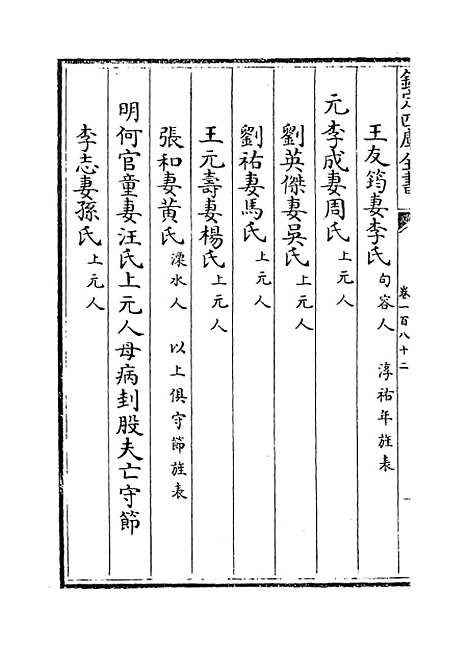 欽定四庫全書
卷一百八十二
王友筠妻李氏句容人 淳祐年旌表
元李成妻周氏上元人
劉英傑妻吳氏上元人
劉祐妻馬氏上元人
王元壽妻楊氏上元人
張和妻黃氏溧水人 以上俱守節旌表
明何官童妻汪氏上元人母病刲股夫亡守節
李志妻孫氏上元人